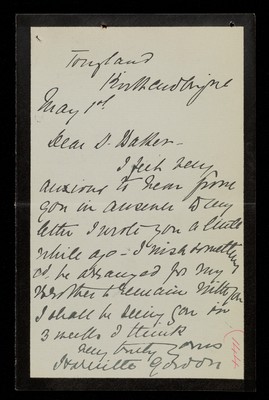 Tongland
Kirkcudbright
May 1st
Dear Dr. Baker -
I feel very
anxious to hear from
you in answer to my
letter I wrote you a little
while ago - I wish something
cd. be arranged for my
brother to remain with you
I shall be seeing you in
3 weeks I think
very truly yours
Gordon